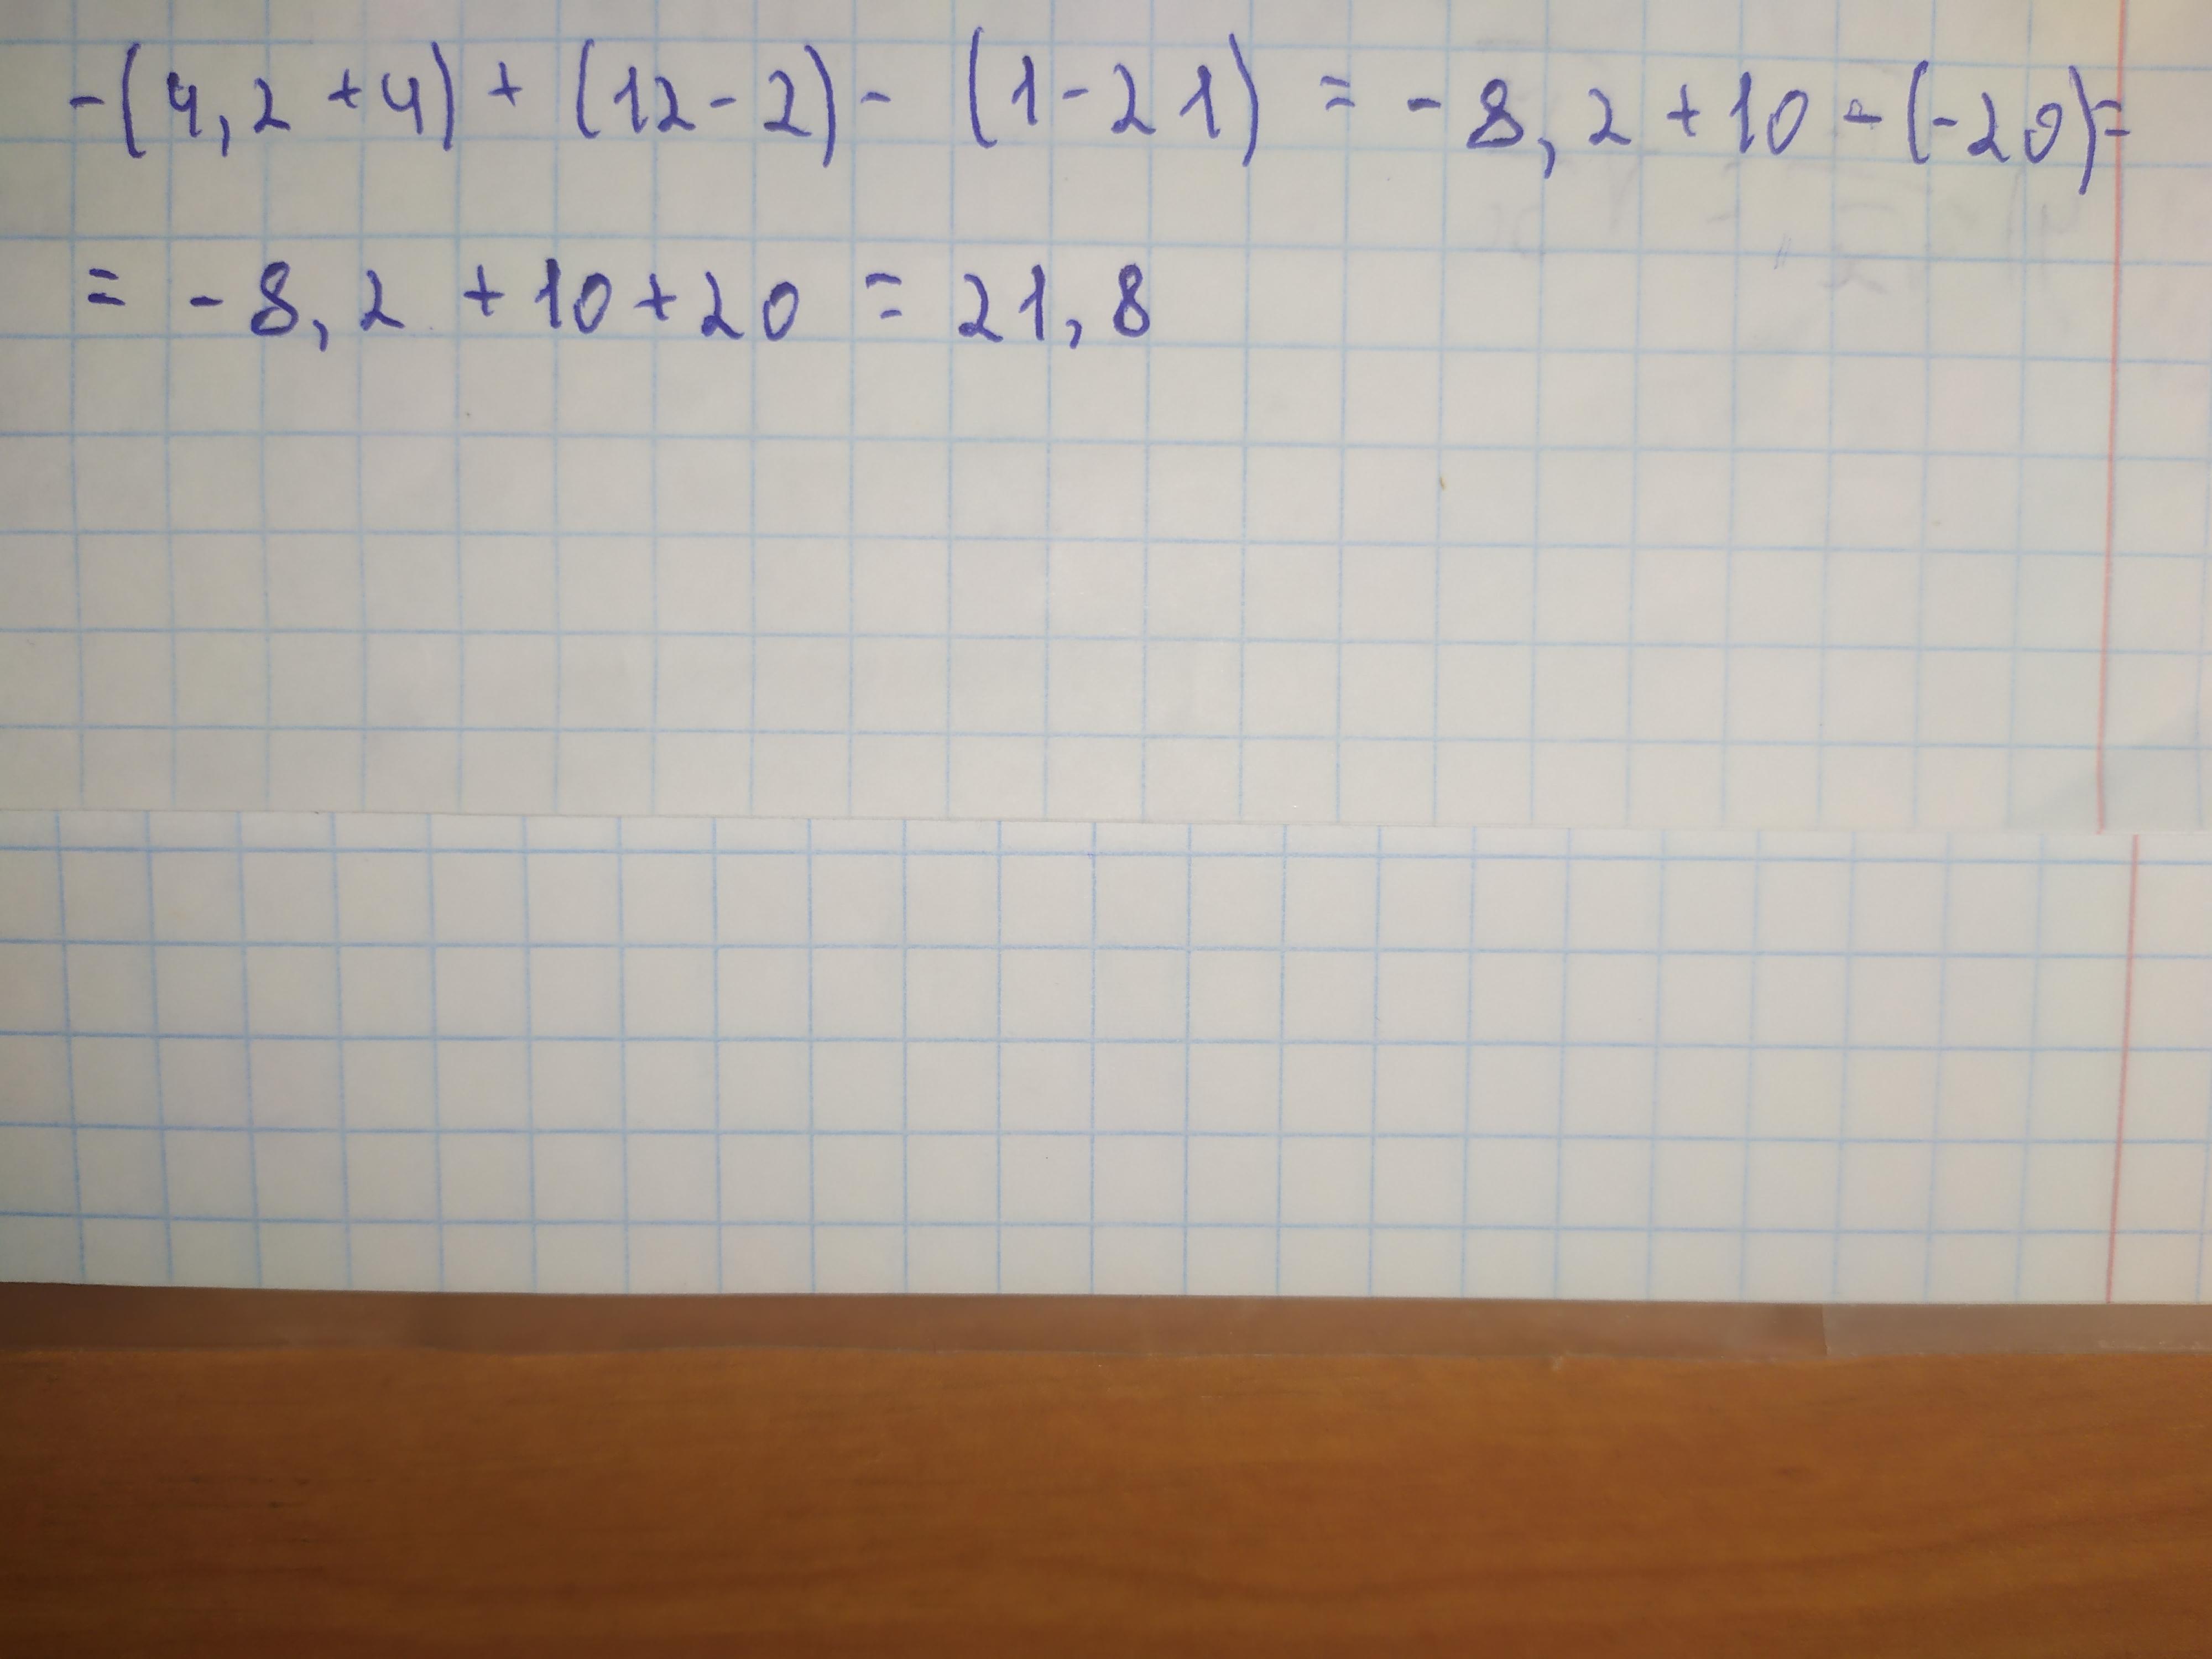 -(4,2+4)+(12-2)-(1-21)=-8,2+10-(-20)=
=-8,2+10+20=21,8